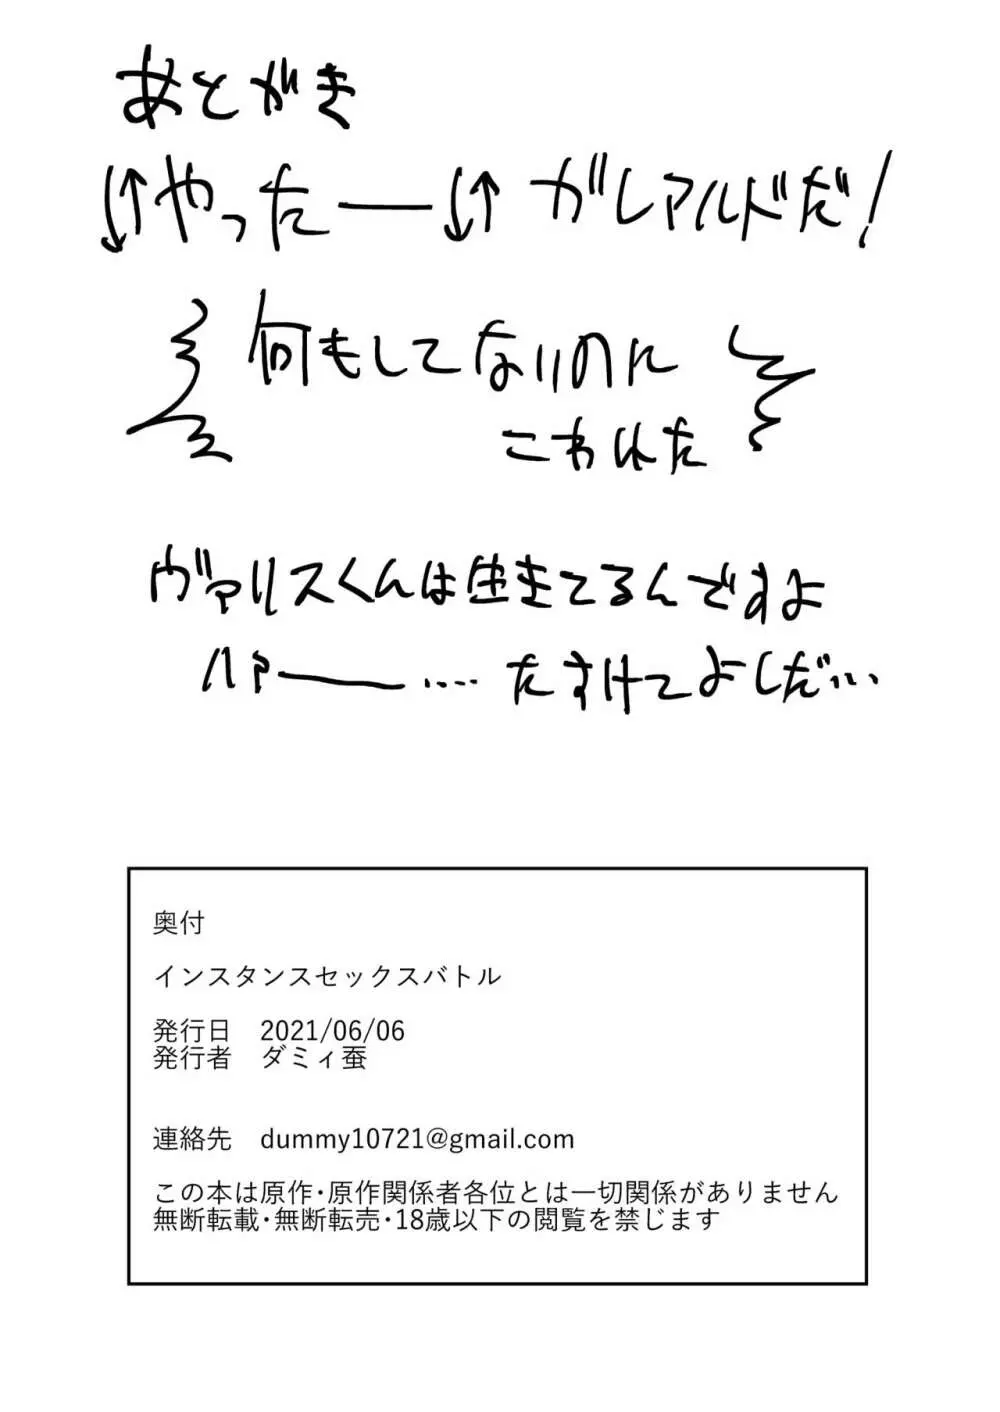 あとがき
↓↑やったー↓↑ ガレアルドだ!
何もしてないのに
こわれた
ヴァリスくんは生きてるんですよ
ハァー…… たすけてよしだ……
奥付
インスタンスセックスバトル
発行日 2021/06/06
発行者 ダミィ蚕
連絡先 dummy10721@gmail.com
この本は原作・原作関係者各位とは一切関係がありません
無断転載・無断転売・18歳以下の閲覧を禁じます